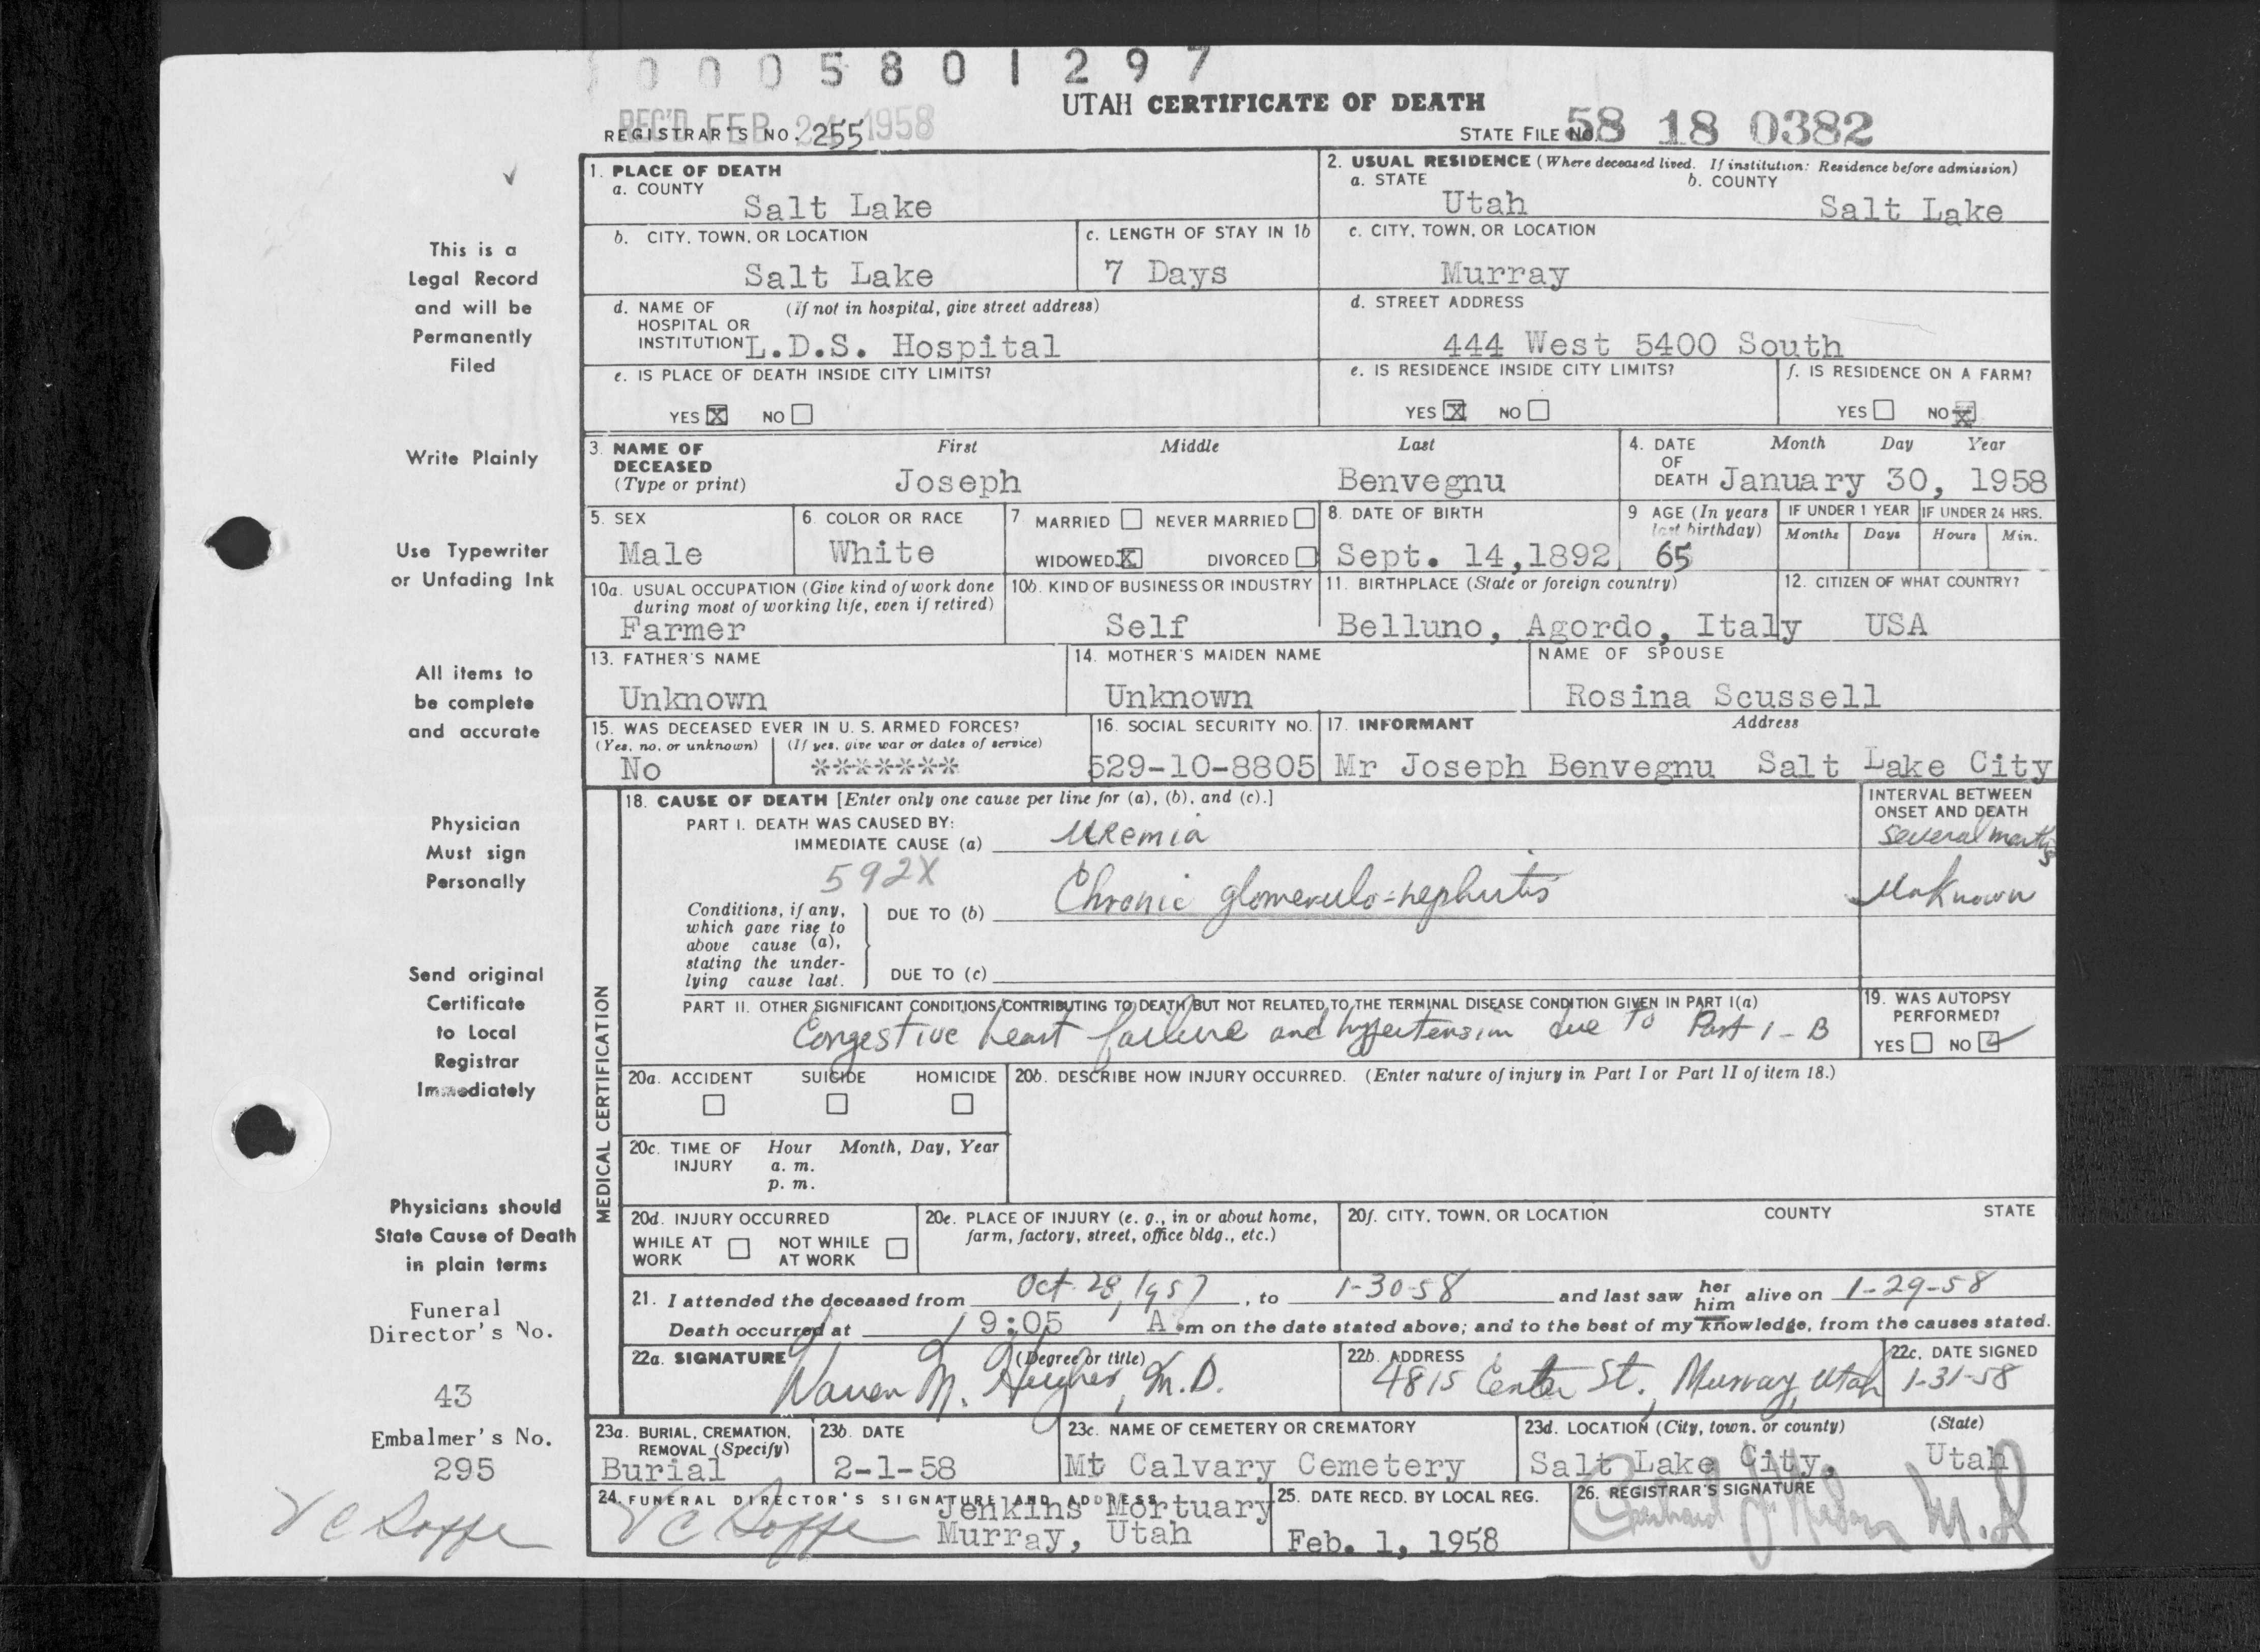 0005801297
UTAH CERTIFICATE OF DEATH
REC'D FEB 1958
REGISTRAR'S NO. 255
STATE FILE NO. 58 18 0382
1. PLACE OF DEATH
a. COUNTY
Salt Lake
2. USUAL RESIDENCE (Where deceased lived. If institution: Residence before admission)
a. STATE b. COUNTY
Utah Salt Lake
b. CITY, TOWN, OR LOCATION
Salt Lake
c. LENGTH OF STAY IN 1b
7 Days
c. CITY, TOWN, OR LOCATION
Murray
d. NAME OF (If not in hospital, give street address)
HOSPITAL OR
INSTITUTION L.D.S. Hospital
d. STREET ADDRESS
444 West 5400 South
e. IS PLACE OF DEATH INSIDE CITY LIMITS?
YES X NO
e. IS RESIDENCE INSIDE CITY LIMITS?
YES X NO
f. IS RESIDENCE ON A FARM?
YES NO X
3. NAME OF First Middle Last
DECEASED
(Type or print) Joseph Benvegnu
4. DATE Month Day Year
OF
DEATH January 30, 1958
5. SEX
Male
6. COLOR OR RACE
White
7. MARRIED NEVER MARRIED
WIDOWED X DIVORCED
8. DATE OF BIRTH
Sept. 14,1892
9 AGE (In years
last birthday)
65
IF UNDER 1 YEAR IF UNDER 24 HRS.
Months Days Hours Min.
10a. USUAL OCCUPATION (Give kind of work done
during most of working life, even if retired)
Farmer
10b. KIND OF BUSINESS OR INDUSTRY
Self
11. BIRTHPLACE (State or foreign country)
Belluno, Agordo, Italy
12. CITIZEN OF WHAT COUNTRY?
USA
13. FATHER'S NAME
Unknown
14. MOTHER'S MAIDEN NAME
Unknown
NAME OF SPOUSE
Rosina Scussell
15. WAS DECEASED EVER IN U. S. ARMED FORCES?
(Yes, no, or unknown) (If yes, give war or dates of service)
No *******
16. SOCIAL SECURITY NO.
529-10-8805
17. INFORMANT Address
Mr Joseph Benvegnu Salt Lake City
MEDICAL CERTIFICATION
18. CAUSE OF DEATH [Enter only one cause per line for (a), (b), and (c).]
INTERVAL BETWEEN
ONSET AND DEATH
PART I. DEATH WAS CAUSED BY:
IMMEDIATE CAUSE (a) Uremia several months
592X
Conditions, if any,
which gave rise to
above cause (a),
stating the under-
lying cause last.
DUE TO (b) Chronic glomerulo-nephritis Unknown
DUE TO (c)
PART II. OTHER SIGNIFICANT CONDITIONS CONTRIBUTING TO DEATH BUT NOT RELATED TO THE TERMINAL DISEASE CONDITION GIVEN IN PART I(a)
Congestive heart failure and hypertension due to Part I - B
19. WAS AUTOPSY
PERFORMED?
YES NO ✓
20a. ACCIDENT SUICIDE HOMICIDE
20b. DESCRIBE HOW INJURY OCCURRED. (Enter nature of injury in Part I or Part II of item 18.)
20c. TIME OF Hour Month, Day, Year
INJURY a. m.
p. m.
20d. INJURY OCCURRED
WHILE AT NOT WHILE
WORK AT WORK
20e. PLACE OF INJURY (e. g., in or about home,
farm, factory, street, office bldg., etc.)
20f. CITY, TOWN, OR LOCATION COUNTY STATE
21. I attended the deceased from Oct 28, 1957, to 1-30-58 and last saw her him alive on 1-29-58
Death occurred at 9:05 A.m on the date stated above; and to the best of my knowledge, from the causes stated.
22a. SIGNATURE (Degree or title)
Warren M. Hughes, M.D.
22b. ADDRESS
4815 Center St., Murray, Utah
22c. DATE SIGNED
1-31-58
23a. BURIAL, CREMATION,
REMOVAL (Specify)
Burial
23b. DATE
2-1-58
23c. NAME OF CEMETERY OR CREMATORY
Mt Calvary Cemetery
23d. LOCATION (City, town, or county) (State)
Salt Lake City, Utah
24. FUNERAL DIRECTOR'S SIGNATURE AND ADDRESS
V C Soffe
Jenkins Mortuary
Murray, Utah
25. DATE RECD. BY LOCAL REG.
Feb. 1, 1958
26. REGISTRAR'S SIGNATURE
M.D
This is a
Legal Record
and will be
Permanently
Filed
Write Plainly
Use Typewriter
or Unfading Ink
All items to
be complete
and accurate
Physician
Must sign
Personally
Send original
Certificate
to Local
Registrar
Immediately
Physicians should
State Cause of Death
in plain terms
Funeral
Director's No.
43
Embalmer's No.
295
V C Soffe